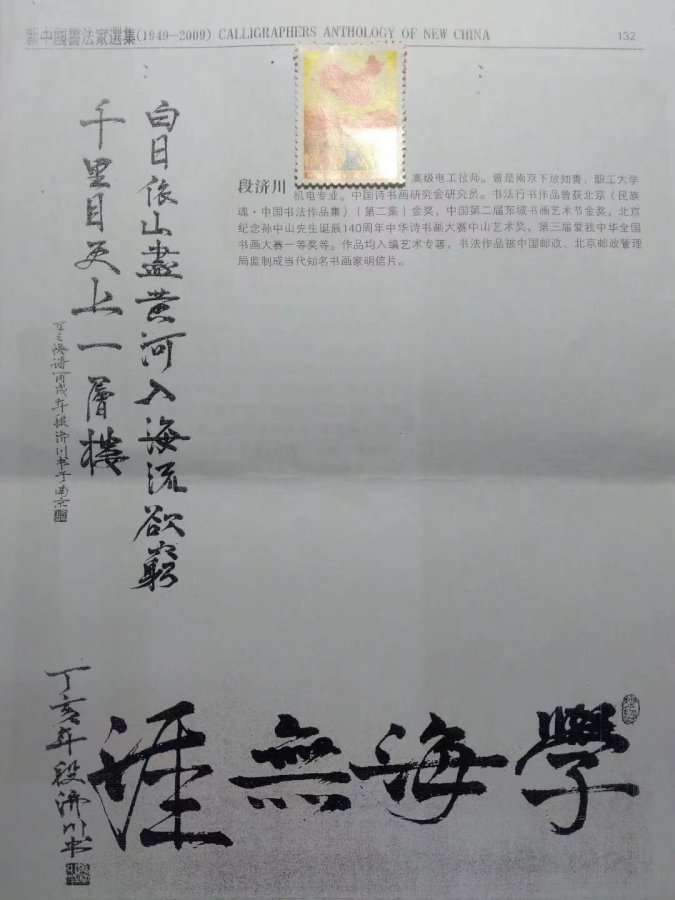 新中國書法家選集(1949—2009) CALLIGRAPHERS ANTHOLOGY OF NEW CHINA
132
段济川
高级电工技师。曾是南京下放知青，职工大学
机电专业。中国诗书画研究会研究员。书法行书作品曾获北京《民族
魂·中国书法作品集》（第二集）金奖，中国第二届东坡书画艺术节金奖，北京
纪念孙中山先生诞辰140周年中华诗书画大赛中山艺术奖，第三届爱我中华全国
书画大赛一等奖等。作品均入编艺术专著，书法作品被中国邮政、北京邮政管理
局监制成当代知名书画家明信片。
白日依山盡黄河入海流欲窮
千里目更上一層樓
王之渙诗丙戌年段济川书于南京
學海無涯
丁亥年段济川书